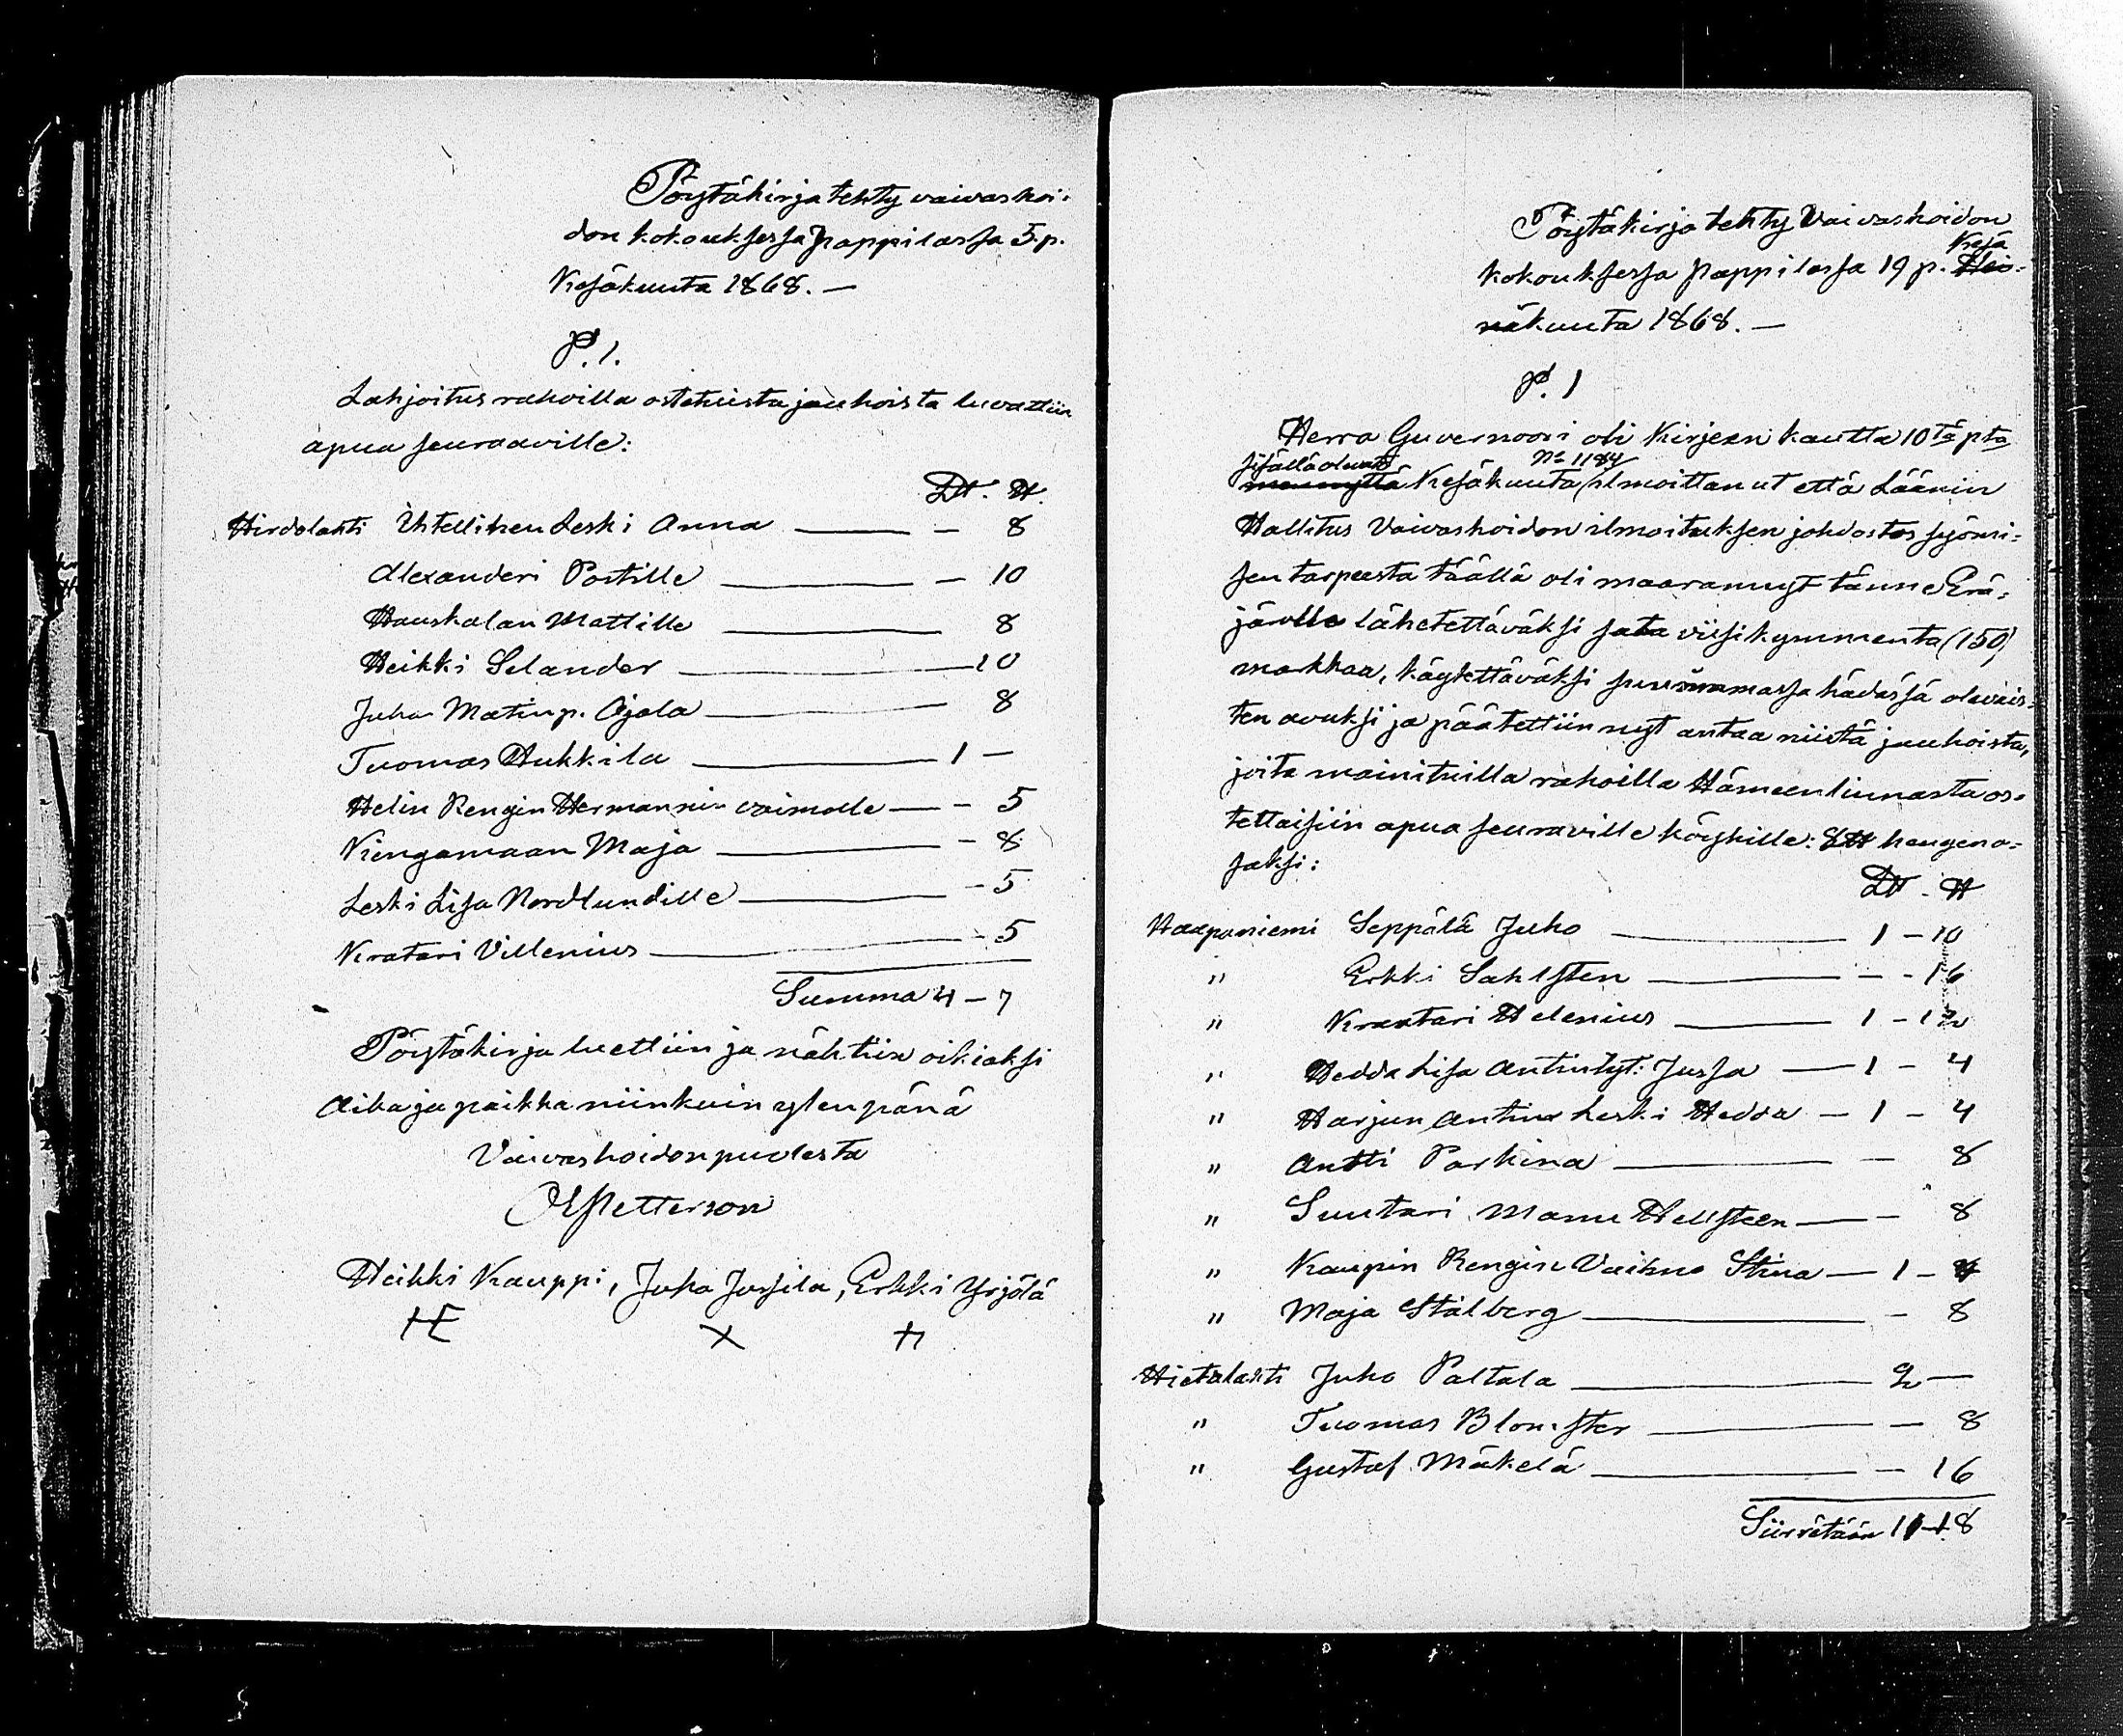 Pöytäkirja tehty vaivashoi-
don kokouksessa Pappilassa 5. p.
Kesäkuuta 1868. —
P. 1.
Lahjoitus rahoilla ostetuista jauhoista luvattiin
apua seuraaville:
L℔. ℔.
Hirdalahti Uhtellihen Leski Anna — — 8
Alexanderi Postille — — 10
Hauskalan Matille — 8
Heikki Selander — 10
Juha Matinp. Ojala — 8
Tuomas Hukkila — 1 —
Helin Rengin Hermannin vaimolle — — 5
Kingamaan Maja — — 8
Leski Lisa Nordlundille — — 5
Kratari Villenius — — 5
Summa 4 — 7
Pöytäkirja luettiin ja nähtiin oikiaksi
Aika ja paikka niinkuin ylenpänä
Vaivashoidon puolesta
Petterson
Heikki Kauppi, Juha Jussila, Erkki Yrjölä
Pöytäkirja tehty Vaivashoidon
Kesä
kokouksessa Pappilassa 19 p. Hei-
näkuuta 1868. —
P. 1
Herra Guvernoori oli Kirjeen kautta 10tä pta
sisällä olevata No 1184
Kesäkuuta ilmoittanut että Läänin
Hallitus Vaivashoidon ilmoituksen johdostas syömi-
sen tarpeesta täällä oli maarannyt tänne Erä-
järvlle lähetettäväksi sata viisikymmenta (150)
markkaa, käytettäväksi suurimmassa hädässä olevais-
ten avuksi ja päätettiin nyt antaa niistä jauhoista,
joita mainituilla rahoilla Hämeenlinnasta os-
tettaisiin apua seuraville köyhille: 8 ℔ hengen o-
saksi:
L℔. ℔
Haapaniemi Seppälä Juho — 1 — 10
" Erkki Sahlsten — — 16
" Kraatari Helenius — 1 — 12
" Hedda Lisa Antintyt: Jussa — 1 — 4
" Harjun Antina Leski Hedda — 1 — 4
" Antti Parkina — — 8
" Suutari Manu Hellsteen — — 8
" Kaupin Rengin Vaimo Stina — 1 — 4
" Maja Stålberg — — 8
Hietalahti Juho Paltala — 2 —
" Tuomas Blomster — — 8
" Gustaf Mäkelä — — 16
Siirrätään 11 — 18